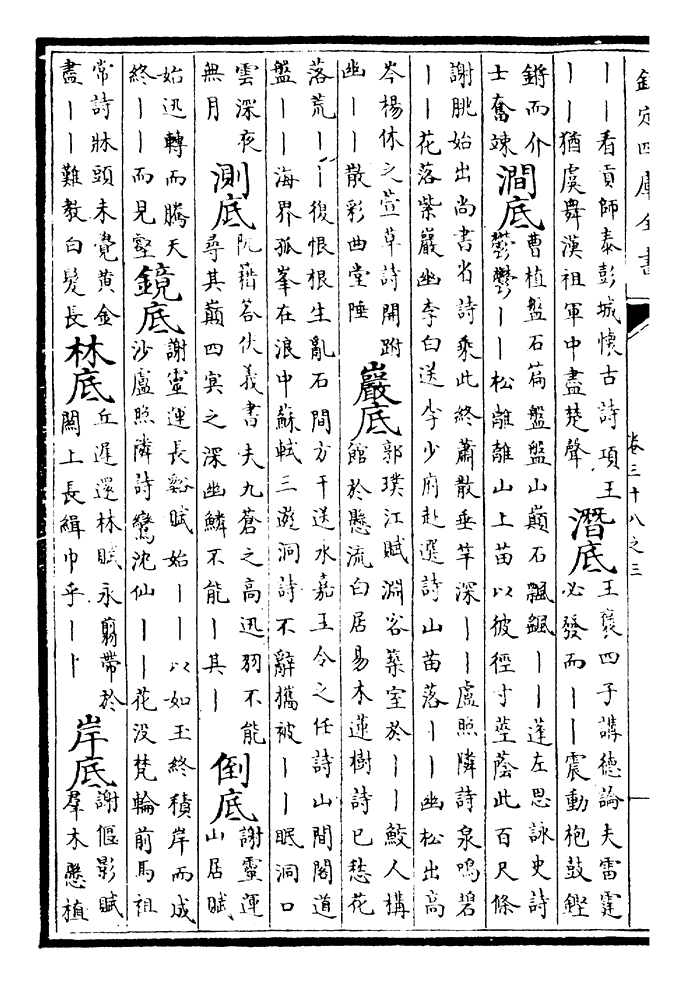 欽定四庫全書
卷三十八之三
——看貢師泰彭城懷古詩項王
——猶虞舞漢祖軍中盡楚聲
潛底
王襃四子講德論夫雷霆
必發而——震動枹鼓鏗
鏘而介
士奮竦
澗底
曹植盤石篇盤盤山巔石飄飖——蓬左思詠史詩
鬱鬱——松離離山上苗以彼徑寸莖蔭此百尺條
謝朓始出尚書省詩乘此終蕭散垂竿深——盧照隣詩泉鳴碧
——花落紫巖幽李白送李少府赴選詩山苗落——幽松出高
岑楊休之萱草詩開跗
幽——散彩曲堂陲
巖底
郭璞江賦淵客築室於——鮫人構
館於懸流白居易木蓮樹詩已愁花
落荒——復恨根生亂石間方干送水嘉王令之任詩山間閣道
盤——海界孤峯在浪中蘇軾三遊洞詩不辭攜被——眠洞口
雲深夜
無月
測底
阮藉答伏義書夫九蒼之高迅羽不能
尋其巔四冥之深幽鱗不能—其—
倒底
謝靈運
山居賦
始迅轉而騰天
終——而見壑
鏡底
謝靈運長谿賦始——以如玉終積岸而成
沙盧照隣詩鸞沈仙——花没梵輪前馬祖
常詩牀頭未覺黄金
盡——難教白髮長
林底
丘遲還林賦永翦帶於
闕上長緝巾乎——
岸底
謝偃影賦
羣木懸植